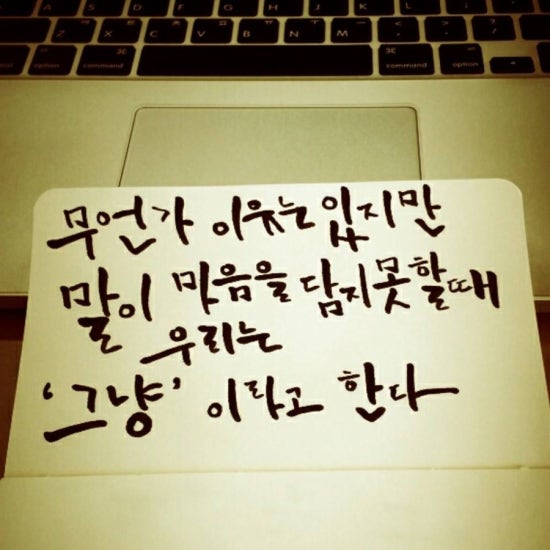 command
option
command
option
무언가 이유는 있지만
말이 마음을 담지못할때
우리는
'그냥' 이라고 한다